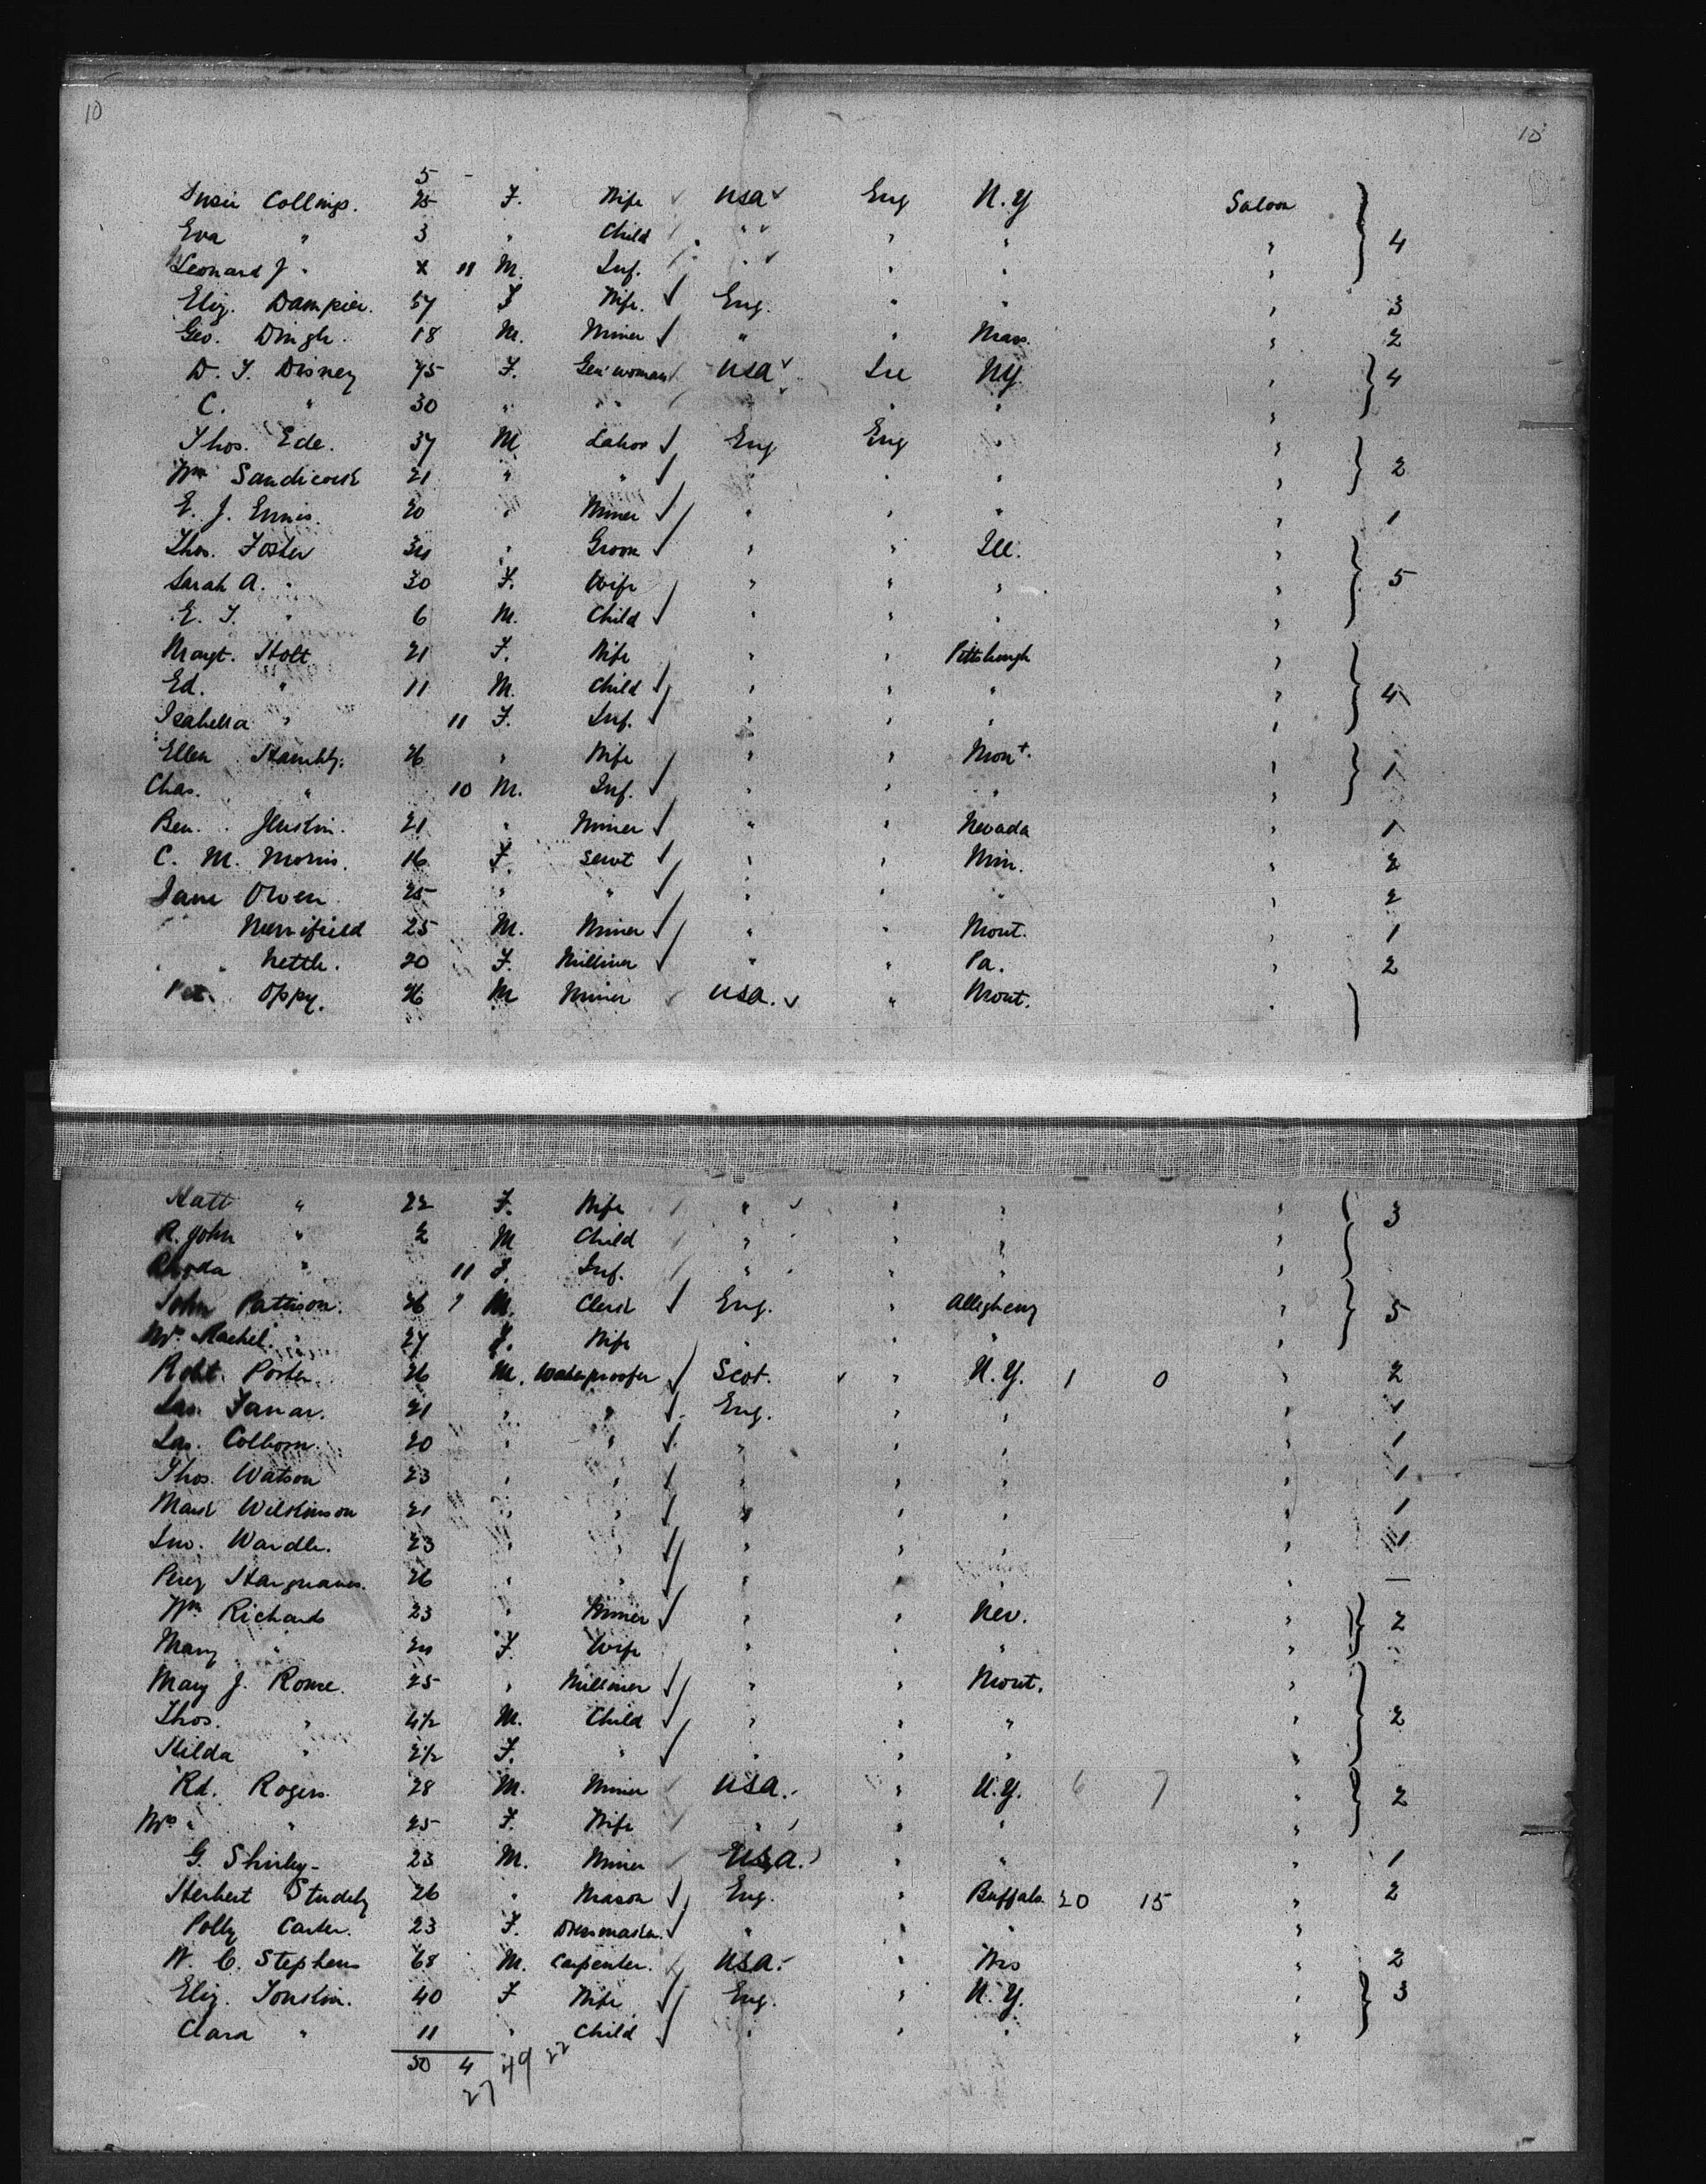 10 10
5 -
Susie Collings. 25 F. Wife ✓ USA ✓ Eng N.Y Saloon
Eva " 3 " Child " " " " 4
Leonard J. " x 11 M. Inf. " " " "
Eliz. Dampier. 57 F Wife. ✓ Eng. " " " 3
Geo. Dingle. 18 M. Miner ✓ " " Mass. " 2
D. T. Disney 75 F. Gen'woman USA ✓ Ire NY " 4
C. " 30 " " " " " " "
Thos. Ede. 37 M Labor ✓ Eng Eng " "
Wm Sandicock 21 " " ✓ " " " " 2
E. J. Ennis. 20 " Miner ✓ " " " " 1
Thos. Foster 34 " Groom ✓ " " Ill. "
Sarah A. " 30 F. Wife " " " " 5
E. T. " 6 M. Child ✓ " " " "
Margt. Holt 21 F. Wife " " Pittsburgh "
Ed. " 11 M. Child ✓ " " " " 4
Isabella " 11 F. Inf. ✓ " " " "
Ellen Hambly. 26 " Wife " " Mont. " 1
Chas. " 10 M. Inf. ✓ " " " "
Ben. 21 " Miner ✓ " " Nevada " 1
C. M. Morris. 16 F. Servt ✓ " " Min. " 2
Jane Owen 25 " " ✓ " " " " 2
Merrifield 25 M. Miner ✓ " " Mont. " 1
Nettle. 20 F. Milliner ✓ " " Pa. " 2
Oppy. 26 M Miner ✓ USA. ✓ " Mont. "
Katt " 22 F. Wife " " " " 3
R. John " 2 M Child " " " "
Rhoda " 11 F. Inf. " " " "
John Pattison. 26 M. Clerk ✓ Eng. " Allegheny " 5
Mrs Rachel. " 27 F. Wife " " " "
Robt. Porter. 26 M. Waterproofer ✓ Scot. ✓ " N.Y. 1 0 " 2
Jas. Farrar. 21 " " ✓ Eng. " " " 1
Jas. Colborn. 20 " " ✓ " " " " 1
Thos. Watson 23 " " ✓ " " " " 1
Mark Wilkinson 21 " " ✓ " " " " 1
Jno. Wardle. 23 " " ✓ " " " " 1
Percy Hargreaves. 26 " " ✓ " " " " —
Wm Richards 23 " Miner ✓ " " Nev. " 2
Mary " 24 F. Wife " " " "
Mary J. Rowe. 25 " Milliner ✓ " " Mont. "
Thos. " 4½ M. Child ✓ " " " " 2
Hilda " 2½ F. " ✓ " " " "
Rd. Rogers. 28 M. Miner ✓ USA. " N.Y. 6 7 " 2
Mrs " " 25 F. Wife " " " "
G. Shirley- 23 M. Miner ✓ USA. " " " 1
Herbert Studely 26 " Mason ✓ Eng. " Buffalo 20 15 " 2
Polly Carter. 23 F. Dressmaker. ✓ " " " "
W. C. Stephens 68 M. Carpenter. ✓ USA. " Wis " 2
Eliz. Tonskin. 40 F Wife ✓ Eng. " N.Y. " 3
Clara " 11 " Child ✓ " " " "
50 4 49 22
27